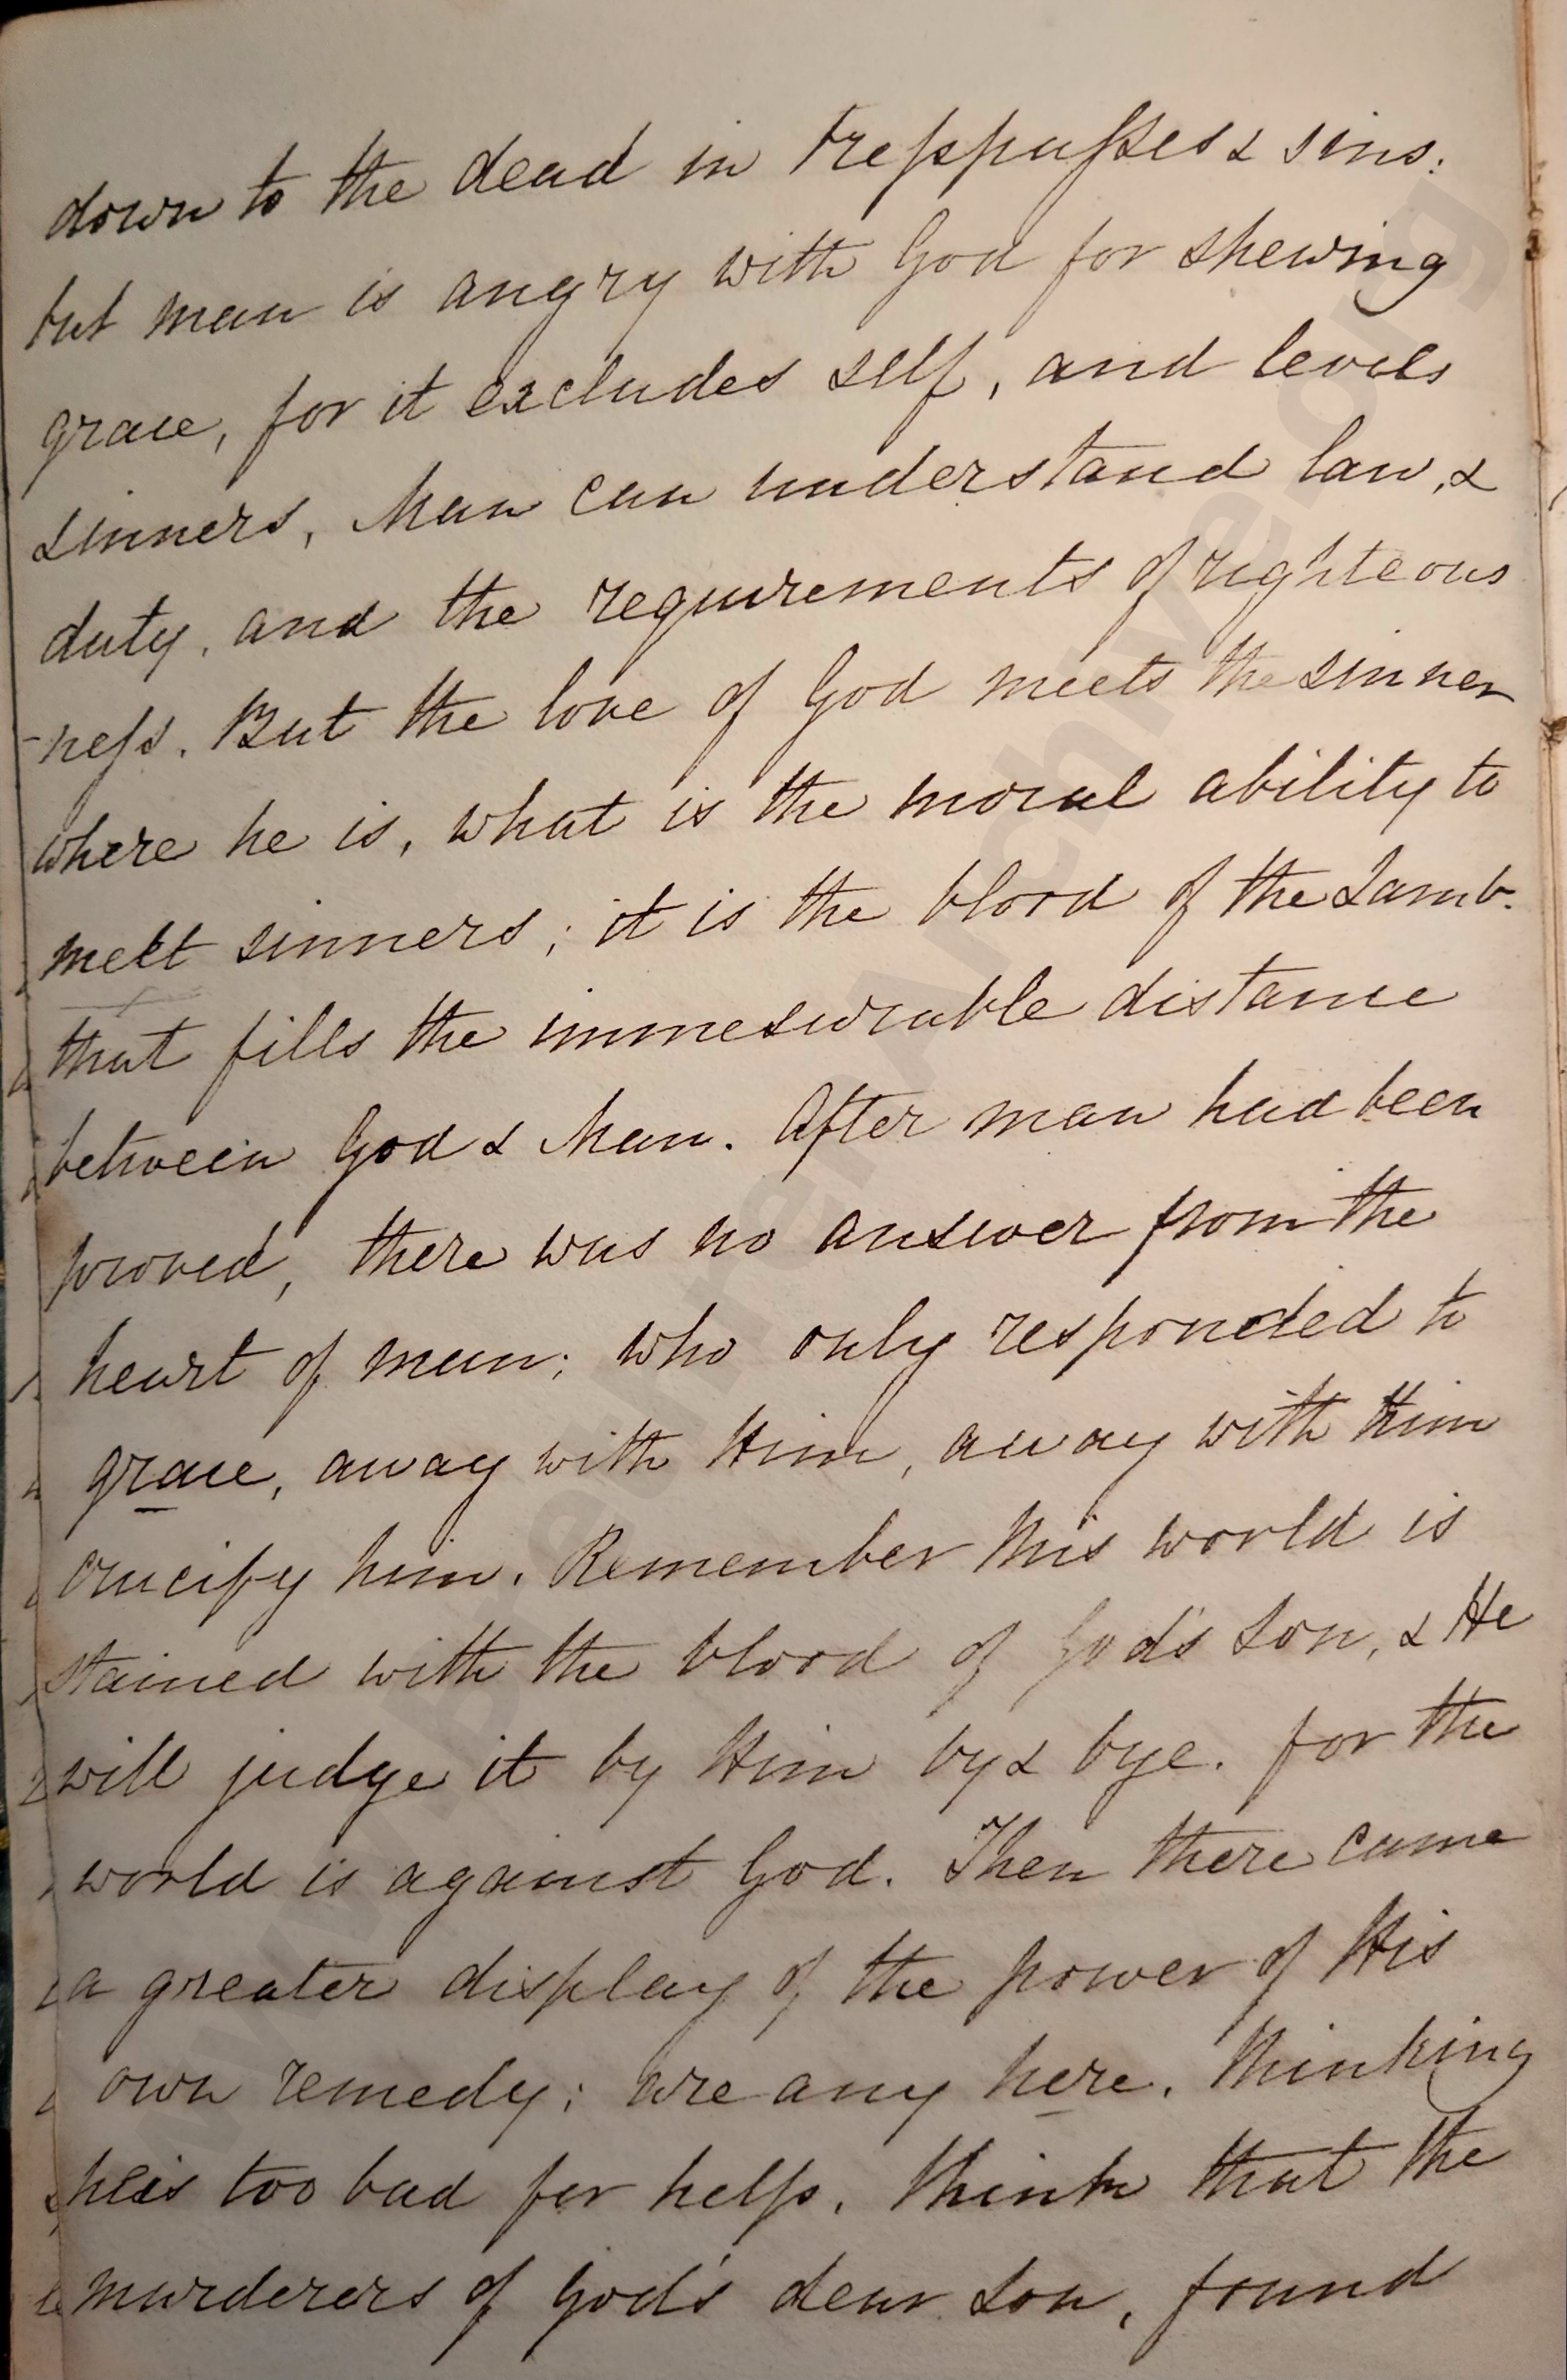 down to the dead in tresspasses & sins:
but man is angry with God for shewing
grace, for it excludes self, and levels
sinners, Man can understand law, &
duty, and the requirements of righteous
-ness. But the love of God meets the sinner
where he is, what is the moral ability to
melt sinners; it is the blood of the Lamb.
that fills the immesurable distance
between God & Man. After man had been
proved, there was no answer from the
heart of man; who only responded to
grace, away with Him, away with Him
crucify him. Remember this world is
stained with the blood of God's Son, & He
will judge it by Him by & bye. for the
world is against God. Then there came
a greater display of the power of His
own remedy; are any here, thinking
he is too bad for help, think that the
murderers of God's dear Son, found
www.BrethrenArchive.org